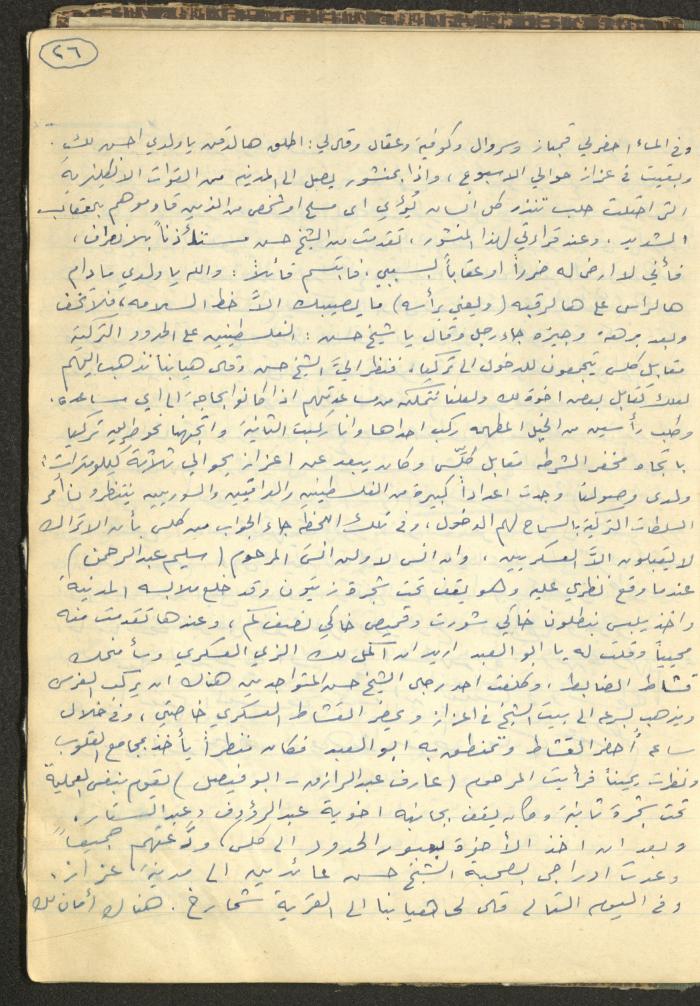 ٢٦
وفي المساء احضر لي قمباز وسروال وكوفية وعقال وقال لي : اطلق هالذقن يا ولدي احسن لك .
وبقيت في عزاز حوالي الاسبوع ، واذا بمنشور يصل الى المدينه من القوات الانكليزية
التي احتلت حلب تنذر كل انسان يُؤي اي مسلح او شخص من الذين قاوموهم بالعقاب
الشديد . وعند قراءتي لهذا المنشور ، تقدمت من الشيخ حسن مستئذناً بالانصراف ،
فأني لا ارضى له ضرراً او عقاباً بسببي ، فابتسم قائلاً : والله يا ولدي ما دام
هالراس على هالرقبه ( ويعني برأسه ) ما يصيبك الاَّ خط السلامه ، فلا تخف
وبعد برهة وجيزه جاء رجل وقال يا شيخ حسن : الفلسطينيين على الحدود التركية
مقابل كلس يتجمعون للدخول الى تركيا ، فنظر اليَّ الشيخ حسن وقال هيا بنا نذهب اليهم
لعلك تقابل بعض اخوة لك ولعلنا نتمكن من مساعدتهم اذا كانوا بحاجة الى اي مساعده .
وطلب رأسين من الخيل المطهمه ركب احداها وانا ركبت الثانية واتجهنا نحو طريق تركيا
باتجاه مخفر الشرطه مقابل كلّس وكان يبعد عن اعزاز بحوالي ثلاثة كيلومترات ،
ولدى وصولنا وجدت اعداداً كبيرة من الفلسطينين والعراقيين والسوريين ينتظرون أمر
السلطات التركية بالسماح لهم الدخول ، وفي تلك اللحظه جاء الجواب من كلس بأن الاتراك
لا يقبلون الاَّ العسكريين ، وان انس لا ولن انسى المرحوم ( سليم عبد الرحمن )
عندما وقع نظري عليه وهو يقف تحت شجرة زيتون وقد خلع ملابسه المدنية
واخذ يلبس بنطلون خاكي شورت وقميص خاكي نصف كم ، وعندها تقدمت منه
محيياً وقلت له يا ابو العبد اريد ان اكمل لك الزي العسكري وسأمنحك
قشاط الضابط ، وكلفت احد رجال الشيخ حسن المتواجدين هناك ان يركب الفرس
ويذهب بسرعه الى بيت الشيخ في اعزاز ويحضر القشاط العسكري خاصتي ، وفي خلال
ساعه أُحضر القشاط وتمنطق به ابو العبد فكان منظراً يأخذ بمجامع القلوب
ونظرت يميناً فرأيت المرحوم ( عارف عبد الرازق - ابو فيصل ) يقوم بنفس العملية
تحت شجرة ثانية وكان يقف بجانبه اخوية عبد الرؤوف وعبد الستار .
وبعد ان اخذ الأخوة بعبور الحدود الى كلس ، ودَّعتهم جميعاً
وعدت ادراجي بصحبة الشيخ حسن عائدين الى مدينة عزاز .
وفي اليوم التالي قال لي هيا بنا الى القرية شمارخ . هناك أمان لك